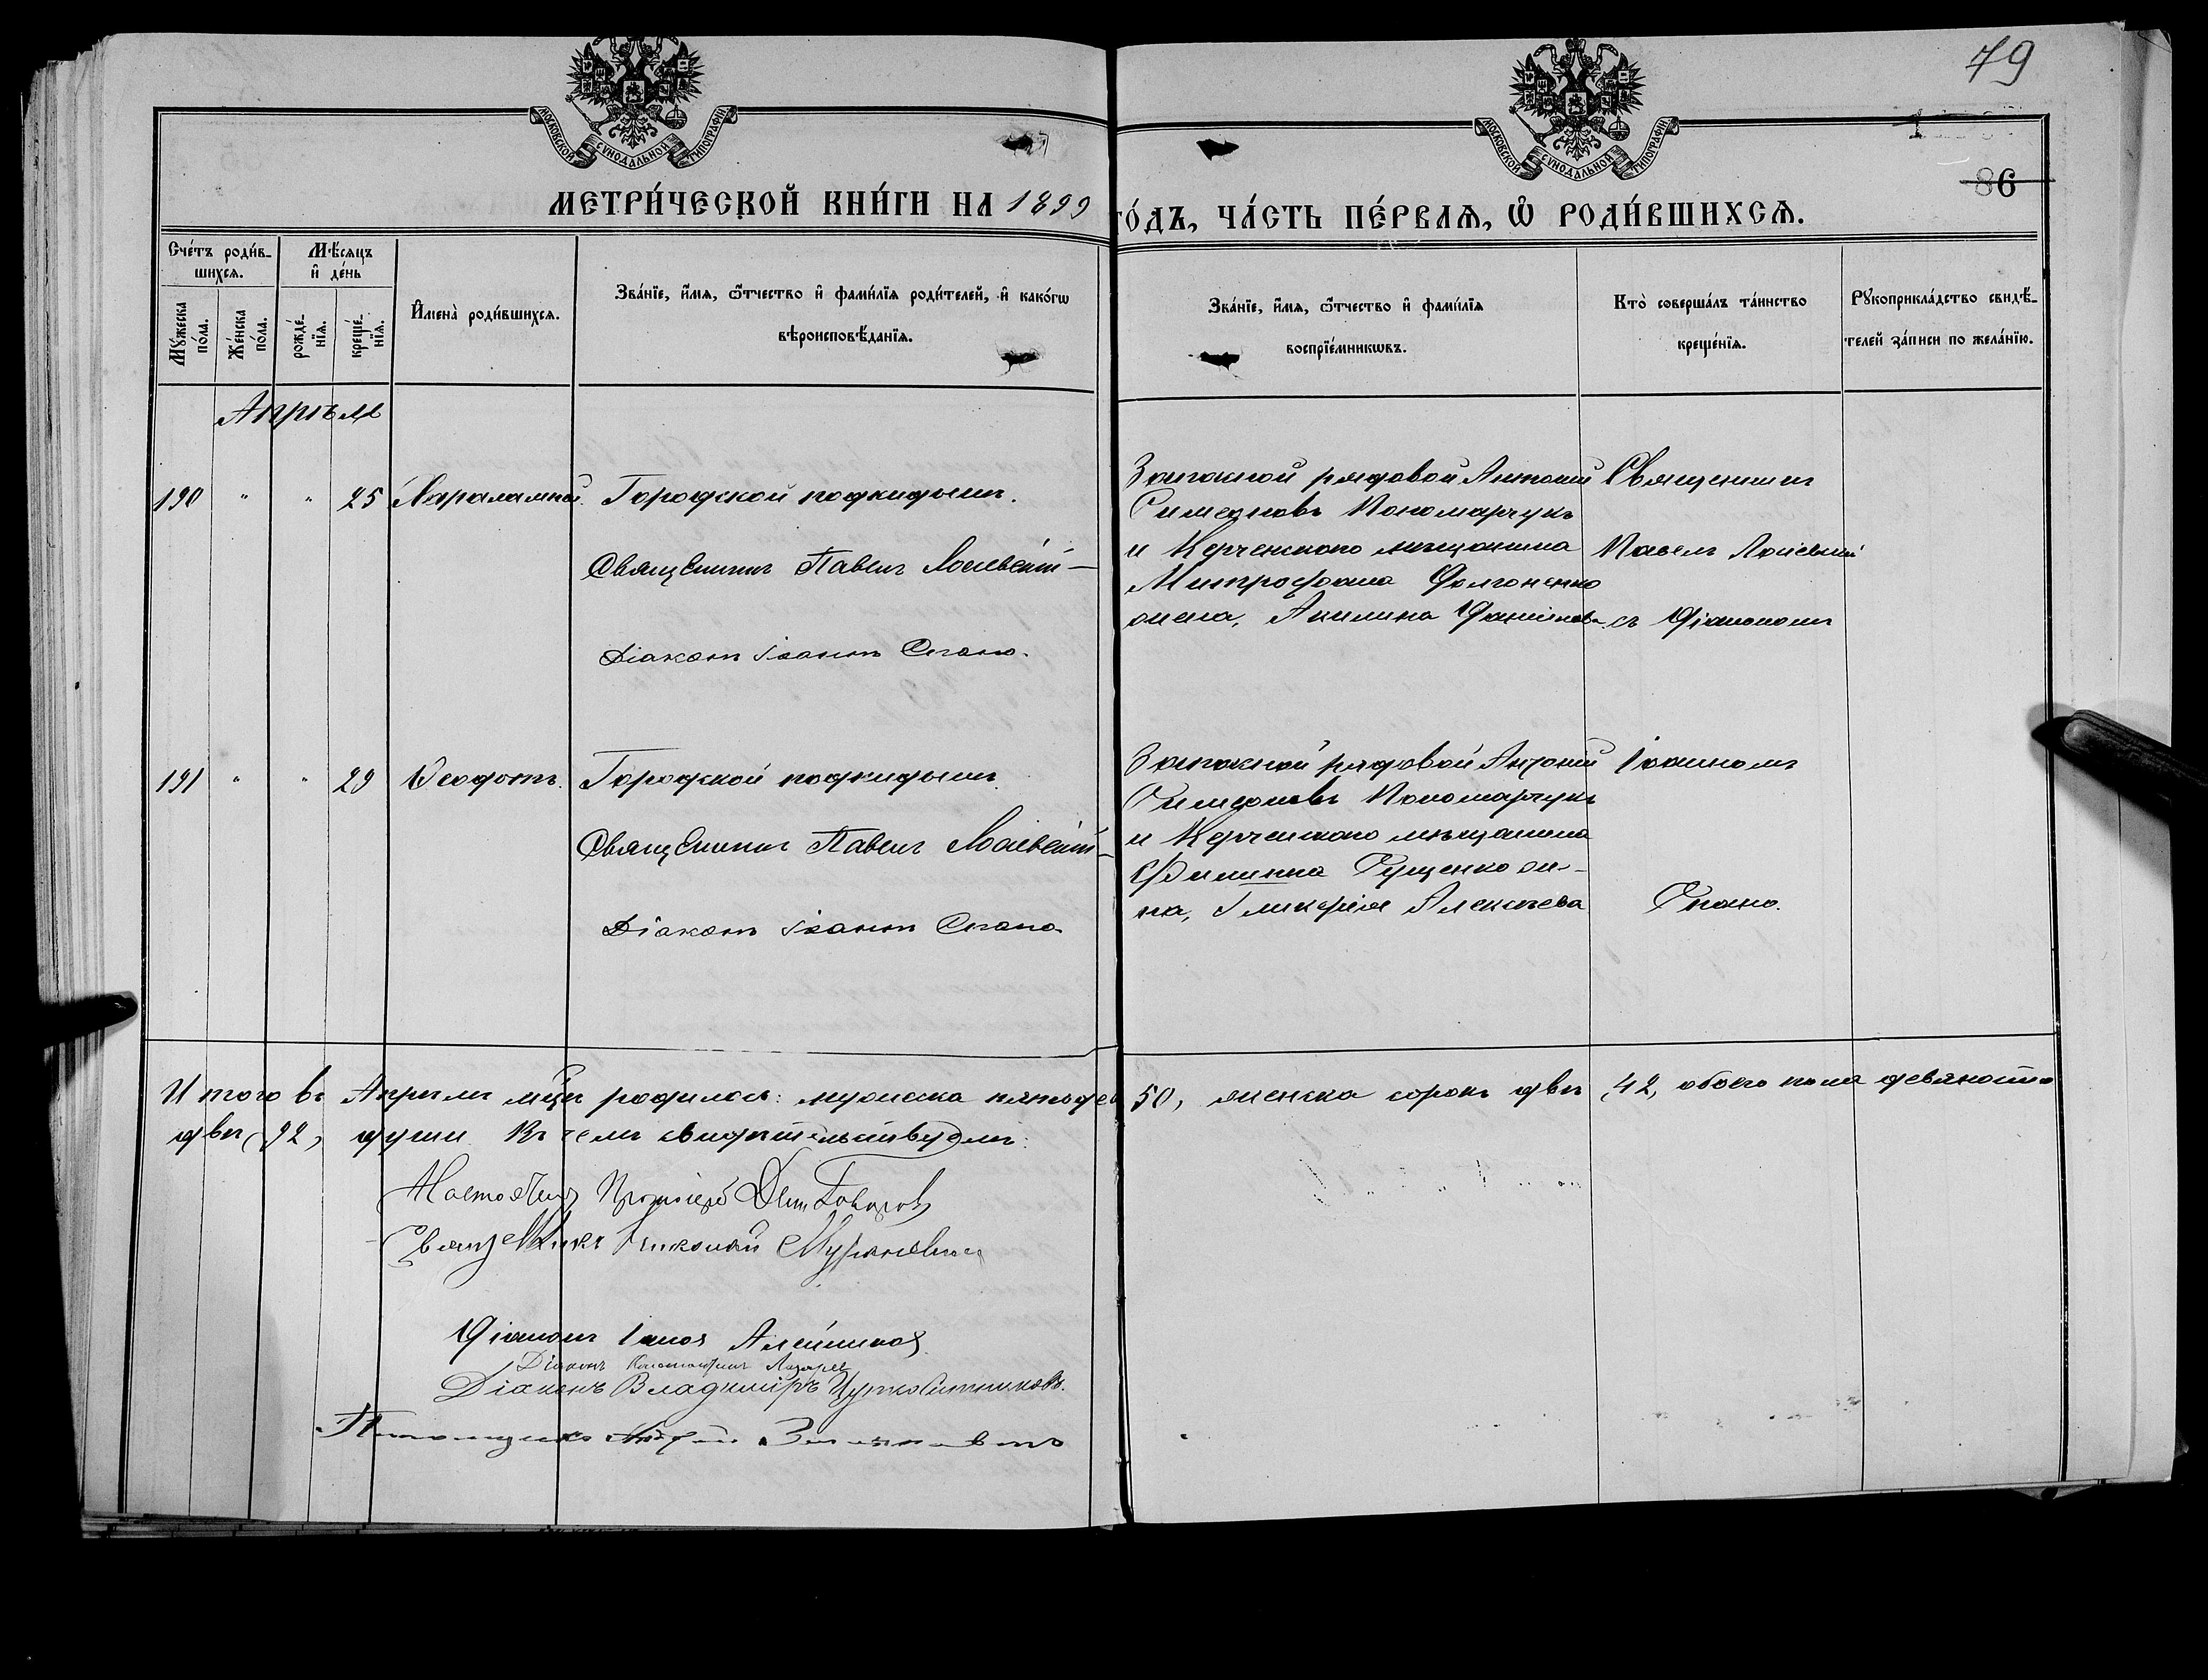 79
86
МОСКОВСКОЙ СѴНОДАЛЬНОЙ ТИПОГРАФІИ
МОСКОВСКОЙ СѴНОДАЛЬНОЙ ТИПОГРАФІИ
МЕТРИ́ЧЕСКОЙ КНИ́ГИ НА 1899 ГО́ДЪ, ЧА́СТЬ ПЕ́РВАѦ, Ѿ РОДИ́ВШИХСѦ.
Сче́тъ роди́в-
шихсѧ.
Мꙋ́жеска по́ла.
Же́нска по́ла.
Мѣ́сѧцъ
и҆ де́нь
рожде́-нїѧ.
креще́-нїѧ.
И҆мена̀ роди́вшихсѧ.
Зва́нїе, и҆́мѧ, ѻ҆́тчество и҆ фами́лїѧ роди́телей, и҆ како́гѡ
вѣроисповѣ́данїѧ.
Зва́нїе, и҆́мѧ, ѻ҆́тчество и҆ фами́лїѧ
воспрїе́мникѡвъ.
Кто̀ соверша́лъ та́инство
креще́нїѧ.
Рꙋкоприкла́дство свидѣ́-
телей за́писи по жела́нїю.
Апрѣль
190 " " 25 Харалампій. Городской подкидышъ.
Священникъ Павелъ Лосіевскій
Діаконъ Іоаннъ Спано.
Запасной рядовой Антоній
Симеоновъ Пономарчукъ
и Керченскаго мѣщанина
Митрофана Долгоненко
жена, Акилина
Священникъ
Павелъ Лосіевскій
съ Діакономъ
191 " " 29 Ѳеодотъ. Городской подкидышъ.
Священникъ Павелъ Лосіевскій
Діаконъ Іоаннъ Спано
Запасной рядовой Антоній
Симеоновъ Пономарчукъ
и Керченскаго мѣщанина
Филиппа Гущенко же-
на, Гликерія Алексѣева
Іоанномъ
Спано.
Итого въ Апрѣлѣ мцѣ родилось: мужеска пятьдес 50, женска сорокъ двѣ, 42, обоего пола девяносто
двѣ (92) души. Въ чемъ свидѣтельствуемъ:
Настоятель Протоіерей
Священникъ Николай
Діаконъ Іаковъ Алейниковъ
Діаконъ Константинъ Лазарев
Діаконъ Владиміръ